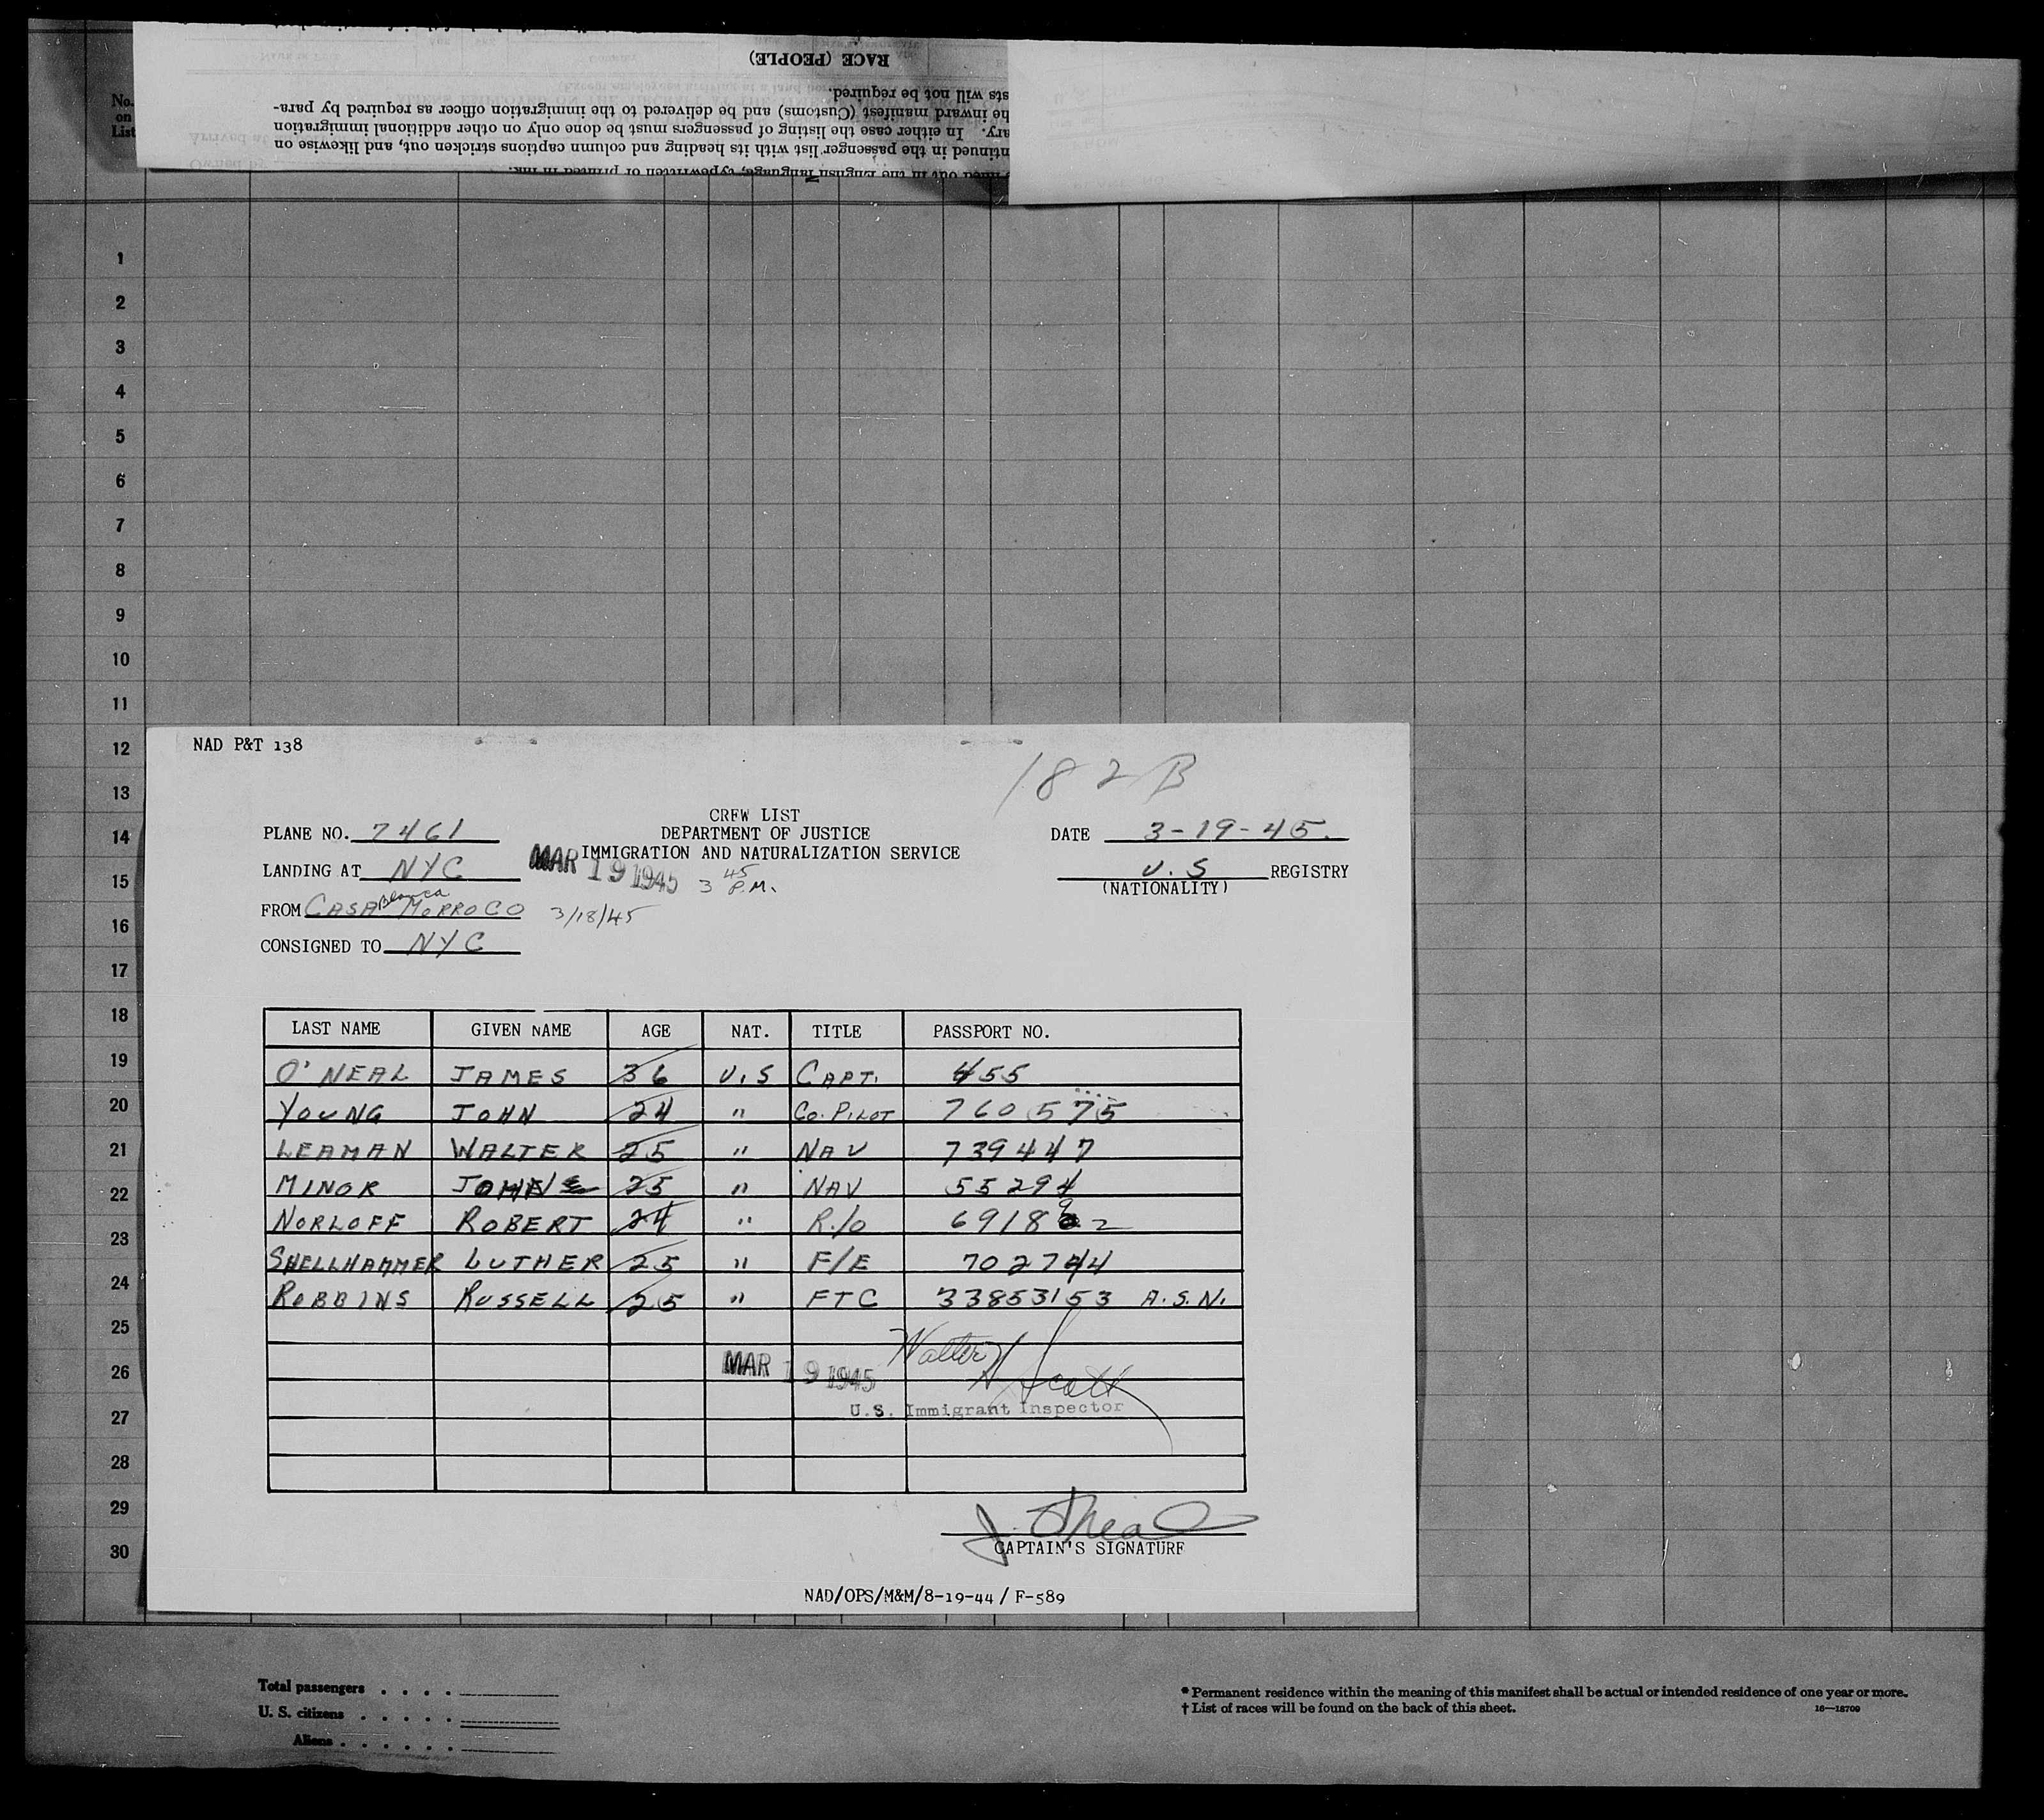 RACE (PEOPLE)
sts will not be required.
he inward manifest (Customs) and be delivered to the immigration officer as required by para-
ary. In either case the listing of passengers must be done only on other additional immigration
ntinued in the passenger list with its heading and column captions stricken out, and likewise on
out in the English language, typewritten or printed in ink.
No. on List
1
2
3
4
5
6
7
8
9
10
11
12
13
14
15
16
17
18
19
20
21
22
23
24
25
26
27
28
29
30
NAD P&T 138
182 B
CREW LIST
PLANE NO. 7461 DEPARTMENT OF JUSTICE DATE 3-19-45.
IMMIGRATION AND NATURALIZATION SERVICE
LANDING AT NYC MAR 19 1945 3 45 P.M. U.S REGISTRY
(NATIONALITY)
FROM CASABlanca MORROCO 3/18/45
CONSIGNED TO NYC
LAST NAME GIVEN NAME AGE NAT. TITLE PASSPORT NO.
O'NEAL JAMES 36 U.S CAPT. 455
YOUNG JOHN 24 " CO. PILOT 760575
LEAMAN WALTER 25 " NAV 739447
MINOR JOHN 25 " NAV 55294
NORLOFF ROBERT 24 " R/O 6918
SHELLHAMMER LUTHER 25 " F/E 702744
ROBBINS RUSSELL 25 " FTC 33853153 A.S.N.
MAR 19 1945 Walter H Scott
U.S. Immigrant Inspector
J. O'Neal
CAPTAIN'S SIGNATURE
NAD/OPS/M&M/8-19-44/F-589
Total passengers . . . .
U. S. citizens . . . . .
Aliens . . . . . .
* Permanent residence within the meaning of this manifest shall be actual or intended residence of one year or more.
† List of races will be found on the back of this sheet. 16—18709